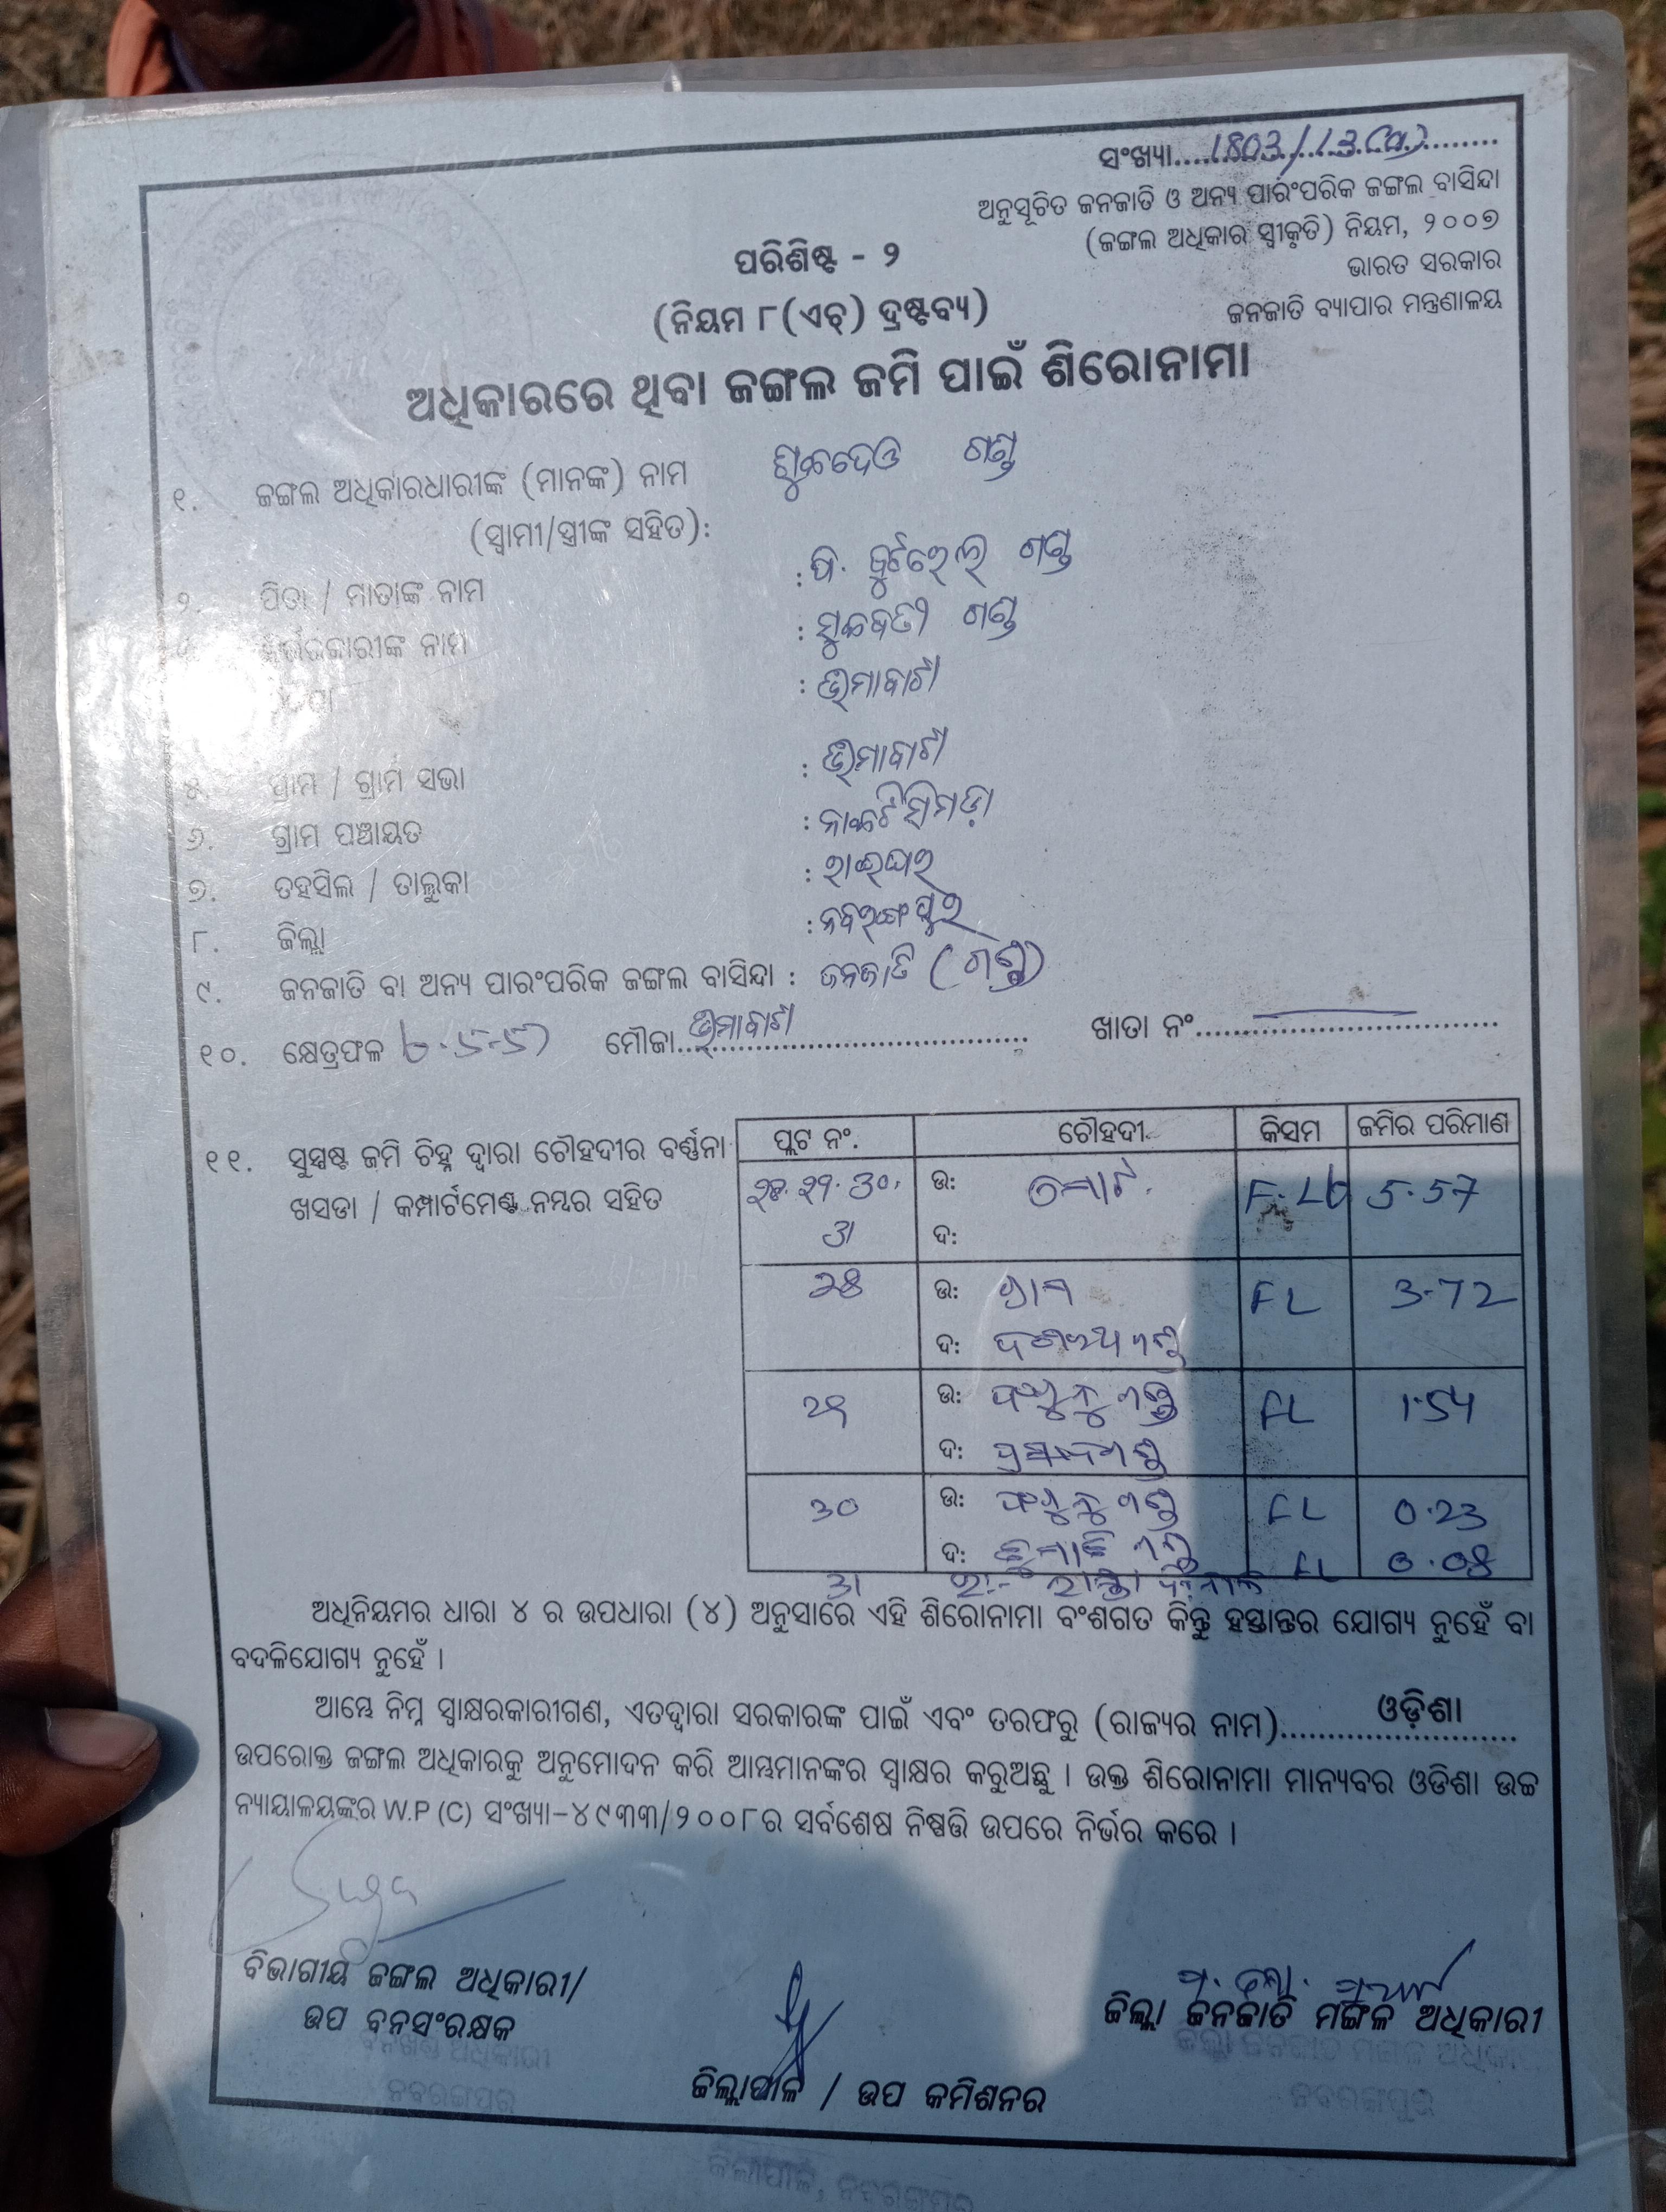 ସଂଖ୍ୟା.....1803/13(ଏ)..........
ଅନୁସୂଚିତ ଜନଜାତି ଓ ଅନ୍ୟ ପାରଂପରିକ ଜଙ୍ଗଲ ବାସିନ୍ଦା
(ଜଙ୍ଗଲ ଅଧିକାର ସ୍ୱୀକୃତି) ନିୟମ, ୨୦୦୭
ଭାରତ ସରକାର
ଜନଜାତି ବ୍ୟାପାର ମନ୍ତ୍ରଣାଳୟ
ପରିଶିଷ୍ଟ - ୨
(ନିୟମ ୮(ଏଚ୍) ଦ୍ରଷ୍ଟବ୍ୟ)
ଅଧିକାରରେ ଥିବା ଜଙ୍ଗଲ ଜମି ପାଇଁ ଶିରୋନାମା
୧. ଜଙ୍ଗଲ ଅଧିକାରଧାରୀଙ୍କ (ମାନଙ୍କ) ନାମ ଶୁକଦେଓ ଗଣ୍ଡ
(ସ୍ୱାମୀ/ସ୍ତ୍ରୀଙ୍କ ସହିତ):
୨. ପିତା / ମାତାଙ୍କ ନାମ : ପି. ଗଣ୍ଡ
ନିର୍ଭରକାରୀଙ୍କ ନାମ : ସୁକବତୀ ଗଣ୍ଡ
: ଭୀମାବାଟୀ
୫. ଗ୍ରାମ / ଗ୍ରାମ ସଭା : ଭୀମାବାଟୀ
୬. ଗ୍ରାମ ପଞ୍ଚାୟତ : ନାକଟିସିମଡ଼ା
୭. ତହସିଲ / ତାଲୁକା : ରାଇଘର
୮. ଜିଲ୍ଲା : ନବରଙ୍ଗପୁର
୯. ଜନଜାତି ବା ଅନ୍ୟ ପାରଂପରିକ ଜଙ୍ଗଲ ବାସିନ୍ଦା : ଜନଜାତି (ଗଣ୍ଡ)
୧୦. କ୍ଷେତ୍ରଫଳ ମୌଜା....ଭୀମାବାଟୀ.... ଖାତା ନଂ..........
୧୧. ସୁସ୍ପଷ୍ଟ ଜମି ଚିହ୍ନ ଦ୍ୱାରା ଚୌହଦୀର ବର୍ଣ୍ଣନା
ଖସଡା / କମ୍ପାର୍ଟମେଣ୍ଟ ନମ୍ବର ସହିତ
ପ୍ଲଟ ନଂ. ଚୌହଦୀ କିସମ ଜମିର ପରିମାଣ
୨୮. ୨୯. ୩୦. ଉ: 5.57
୩୧ ଦ:
୨୮ ଉ: FL 3.72
ଦ: ଗଣ୍ଡ
୨୯ ଉ: ଗଣ୍ଡ FL 1.54
ଦ: ଗଣ୍ଡ
୩୦ ଉ: ଗଣ୍ଡ FL 0.23
ଦ: FL 0.08
୩୧ ରାସ୍ତା
ଅଧିନିୟମର ଧାରା ୪ ର ଉପଧାରା (୪) ଅନୁସାରେ ଏହି ଶିରୋନାମା ବଂଶଗତ କିନ୍ତୁ ହସ୍ତାନ୍ତର ଯୋଗ୍ୟ ନୁହେଁ ବା
ବଦଳିଯୋଗ୍ୟ ନୁହେଁ ।
ଆମ୍ଭେ ନିମ୍ନ ସ୍ୱାକ୍ଷରକାରୀଗଣ, ଏତଦ୍ୱାରା ସରକାରଙ୍କ ପାଇଁ ଏବଂ ତରଫରୁ (ରାଜ୍ୟର ନାମ)......ଓଡ଼ିଶା......
ଉପରୋକ୍ତ ଜଙ୍ଗଲ ଅଧିକାରକୁ ଅନୁମୋଦନ କରି ଆମ୍ଭମାନଙ୍କର ସ୍ୱାକ୍ଷର କରୁଅଛୁ । ଉକ୍ତ ଶିରୋନାମା ମାନ୍ୟବର ଓଡିଶା ଉଚ୍ଚ
ନ୍ୟାୟାଳୟଙ୍କର W.P (C) ସଂଖ୍ୟା-୪୯୩୩/୨୦୦୮ର ସର୍ବଶେଷ ନିଷ୍ପତ୍ତି ଉପରେ ନିର୍ଭର କରେ ।
ବିଭାଗୀୟ ଜଙ୍ଗଲ ଅଧିକାରୀ/
ଉପ ବନସଂରକ୍ଷକ
ଜିଲ୍ଲା ଜନଜାତି ମଙ୍ଗଳ ଅଧିକାରୀ
ଜିଲ୍ଲାପାଳ / ଉପ କମିଶନର
ବନଖଣ୍ଡ ଅଧିକାରୀ
ନବରଙ୍ଗପୁର
ଜିଲ୍ଲା ଜନଜାତି ମଙ୍ଗଳ ଅଧିକାରୀ
ନବରଙ୍ଗପୁର
ଜିଲାପାଳ, ନବରଙ୍ଗପୁର